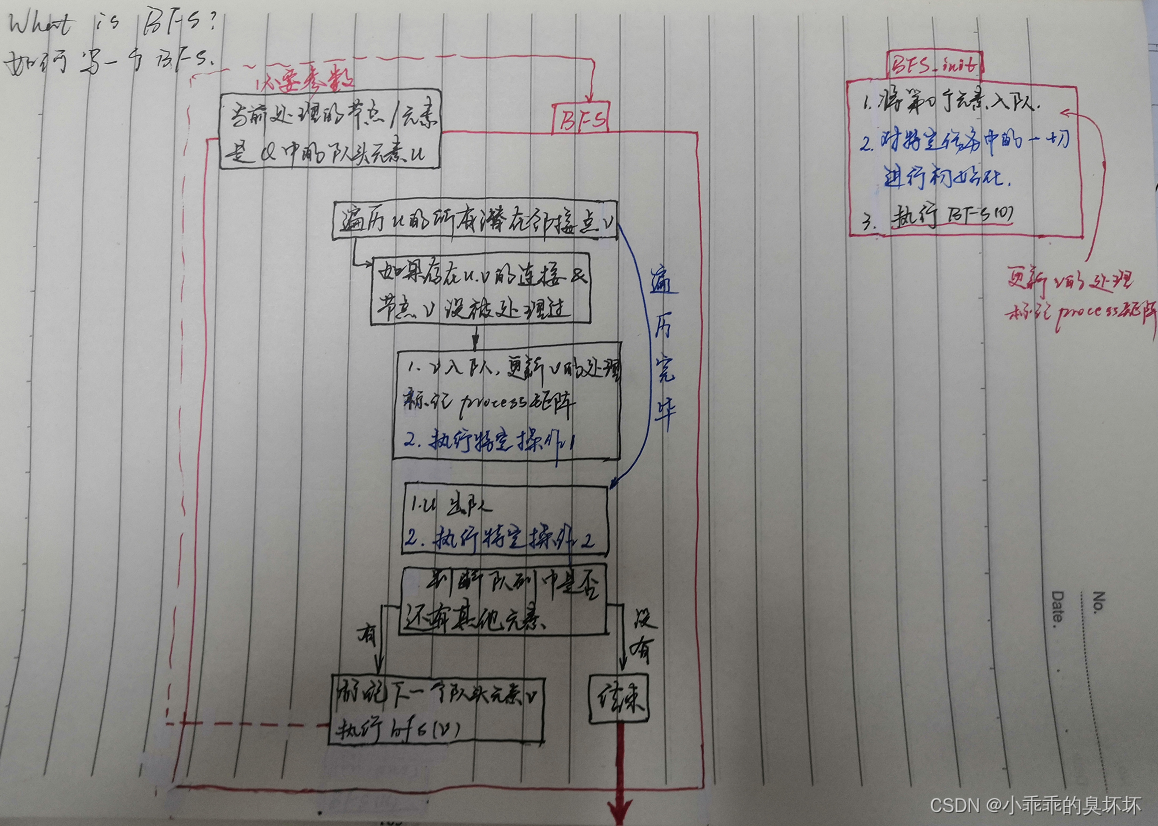 What is BFS?
如何写一个BFS.
必要参数
当前处理的节点/元素
是Q中的队头元素u
BFS
遍历u的所有潜在邻接点v
如果存在u,v的连接&
节点v没被处理过
1. v入队,更新v的处理
标记process矩阵
2. 执行特定操作1
遍历完毕
1. u出队
2. 执行特定操作2
判断队列中是否
还有其他元素
有
没有
标记下一个队头元素v
执行bfs(v)
结束
BFS_init
1. 将第0个元素入队.
2. 对特定任务中的一切
进行初始化.
3. 执行BFS(0)
更新v的处理
标记process矩阵
No.
Date.
CSDN @小乖乖的臭坏坏